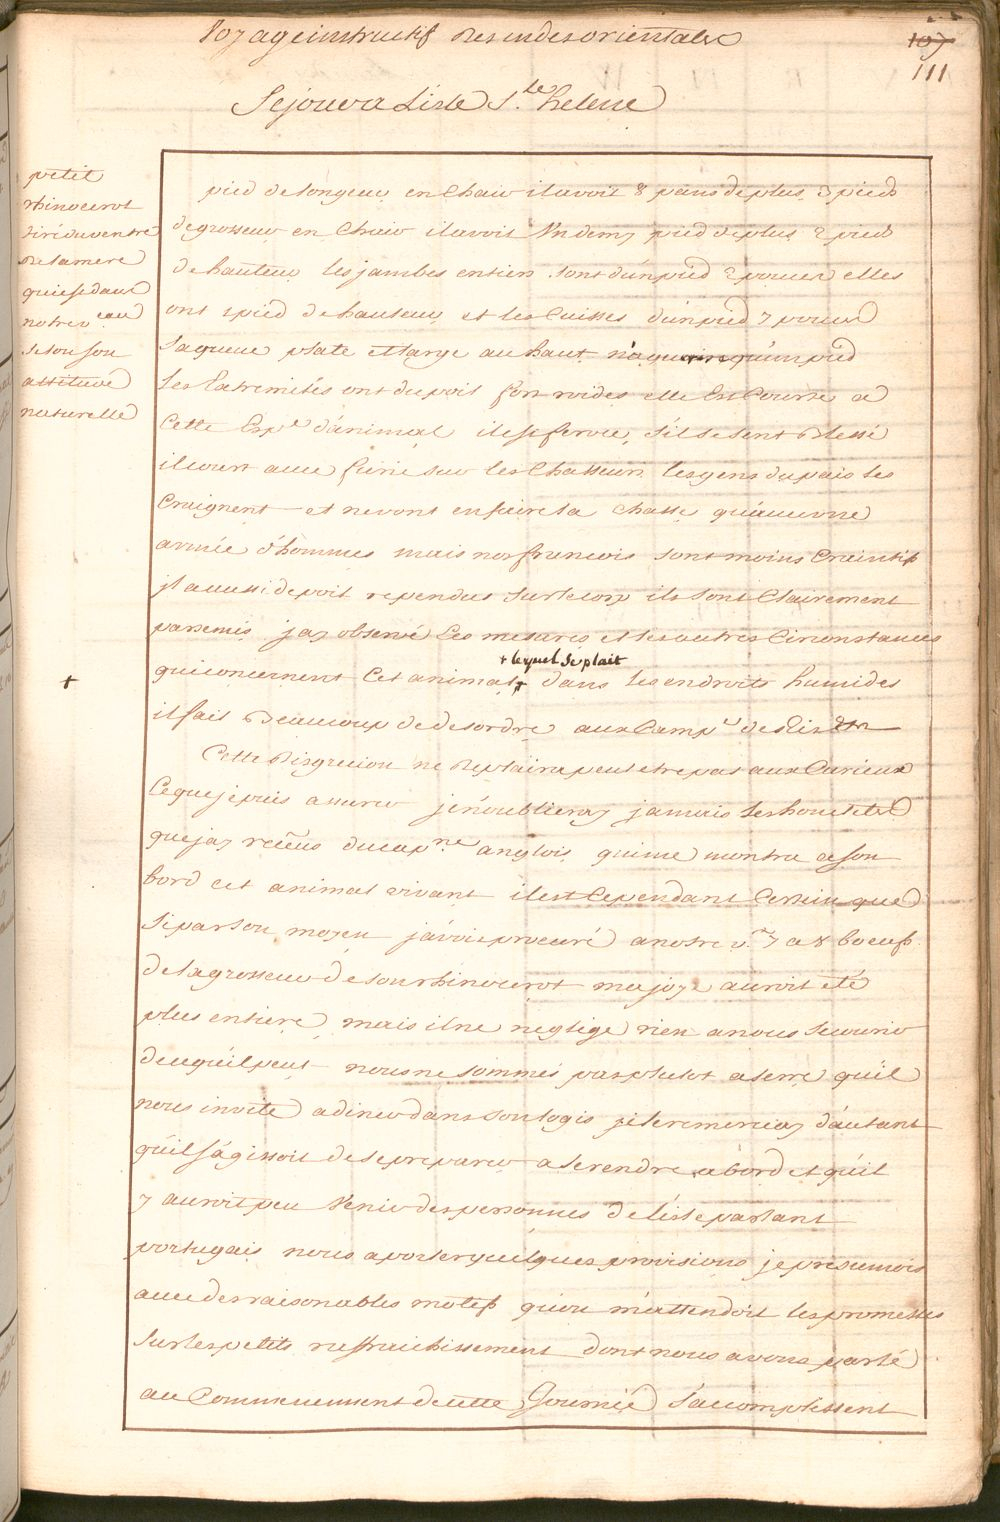 Voyage instructif des indes orientales
107
111
Sejour a Lisle S.te helene
petit
rhinocerot
tiré du ventre
de sa mere
qui est dans
notre v.eau
selon son
attitude
naturelle
pied de longeur en chair il avoit 8 pans de plus 3 pieds
de grosseur en chair il avoit un demy pied de plus 2 pieds
de hauteur les jambes en tien sont d'un pied 2 pouces elles
ont 1 pied de hauteur et les Cuisses d'un pied 7 pouces
sa queue plate et large au haut n'a qu'un pied
les Extremités ont du poil fort roides elle Est Courte a
Cette Esp.e d'animal il est feroce, s'il se sent Blessé
il court avec furie sur les Chasseurs les gens du pais les
Craignent et ne vont en faire la chasse qu'avec une
armée d'hommes mais nos francois sont moins Craintifs
jl a aussi de poil rependus sur le corp ils sont Clairement
parsemis jay observé les mesures et les autres Circonstances
+ lequel se plait
+ qui concernent Cet animal + dans les endroits humides
il fait Beaucoup de desordre aux Camp.s de Ris
Cette Disgretion ne Deplaira peut etre pas aux Curieux
Ce que je puis assurer je n'oublieray jamais les honetetés
que jay receus du cap.ne anglois qui me montra a son
bord cet animal vivant il est Cependant Certain que
si par son moyen j'avois procuré a notre v. 7 a 8 boeufs
de la grosseur de son rhinocerot ma joye auroit été
plus entiere mais il ne neglige rien a nous secourir
de ce qu'il peut nous ne sommes pas plutot a terre qu'il
nous invite a diner dans son logis je le remerciay d'autant
qu'il s'agissoit de se preparer a se rendre a bord et qu'il
y auroit peu venir des personnes de l'isle parlant
portugais nous aporter quelques provisions je presumois
avec des raisonables motifs qu'on m'attendoit les promesses
sur les petits raffraichissement dont nous avons parlé
au Commencement de cette Journée s'accomplissent